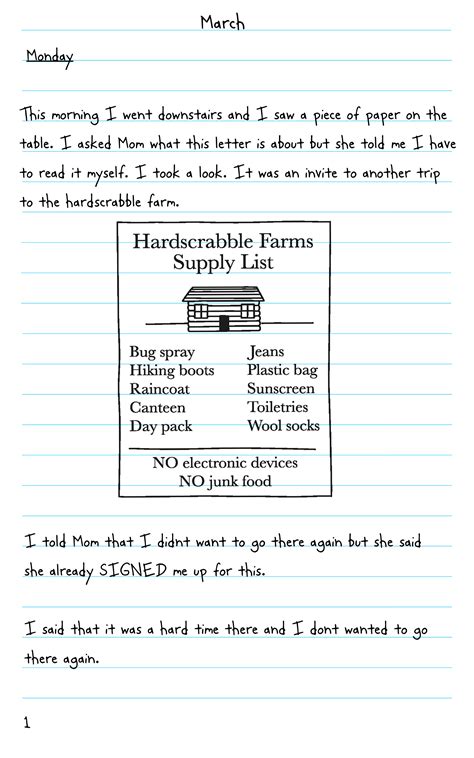 March
Monday
This morning I went downstairs and I saw a piece of paper on the
table. I asked Mom what this letter is about but she told me I have
to read it myself. I took a look. It was an invite to another trip
to the hardscrabble farm.
Hardscrabble Farms
Supply List
Bug spray
Hiking boots
Raincoat
Canteen
Day pack
Jeans
Plastic bag
Sunscreen
Toiletries
Wool socks
NO electronic devices
NO junk food
I told Mom that I didnt want to go there again but she said
she already SIGNED me up for this.
I said that it was a hard time there and I dont wanted to go
there again.
1